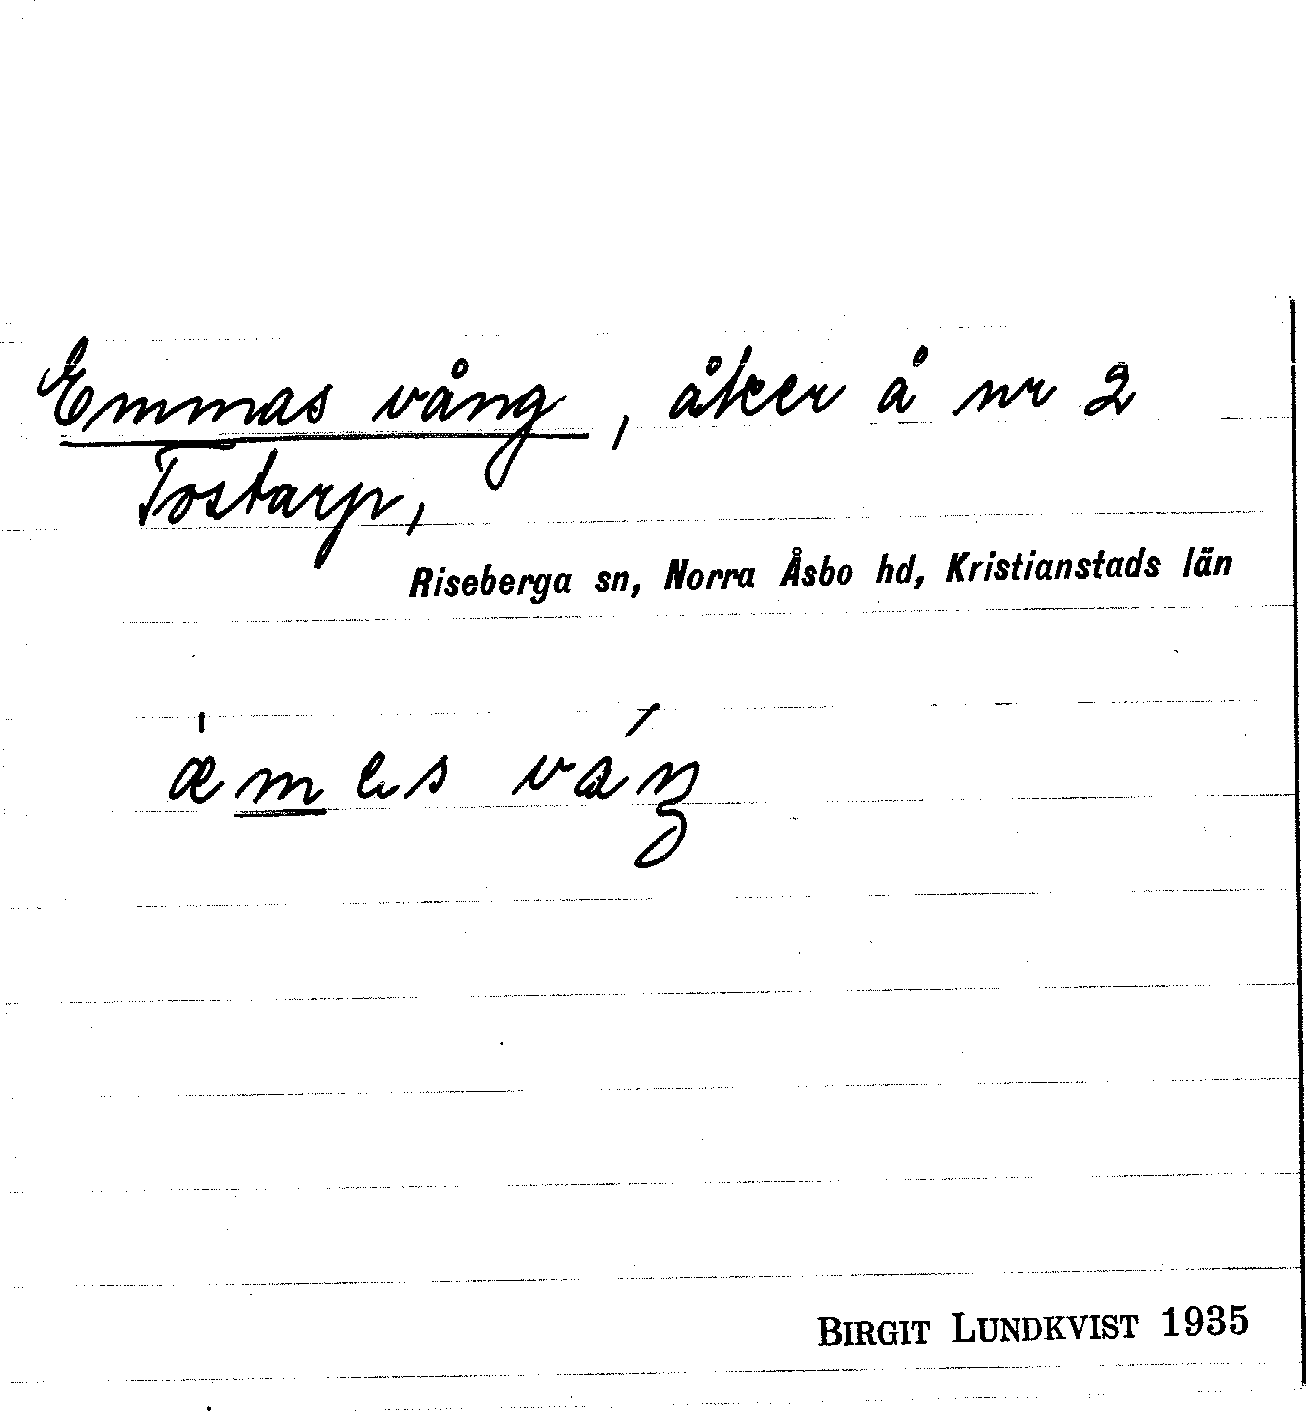 Emmas vång, åker å nr 2
Tostarp,
Riseberga sn, Norra Åsbo hd, Kristianstads län
æmes váŋ
BIRGIT LUNDKVIST 1935